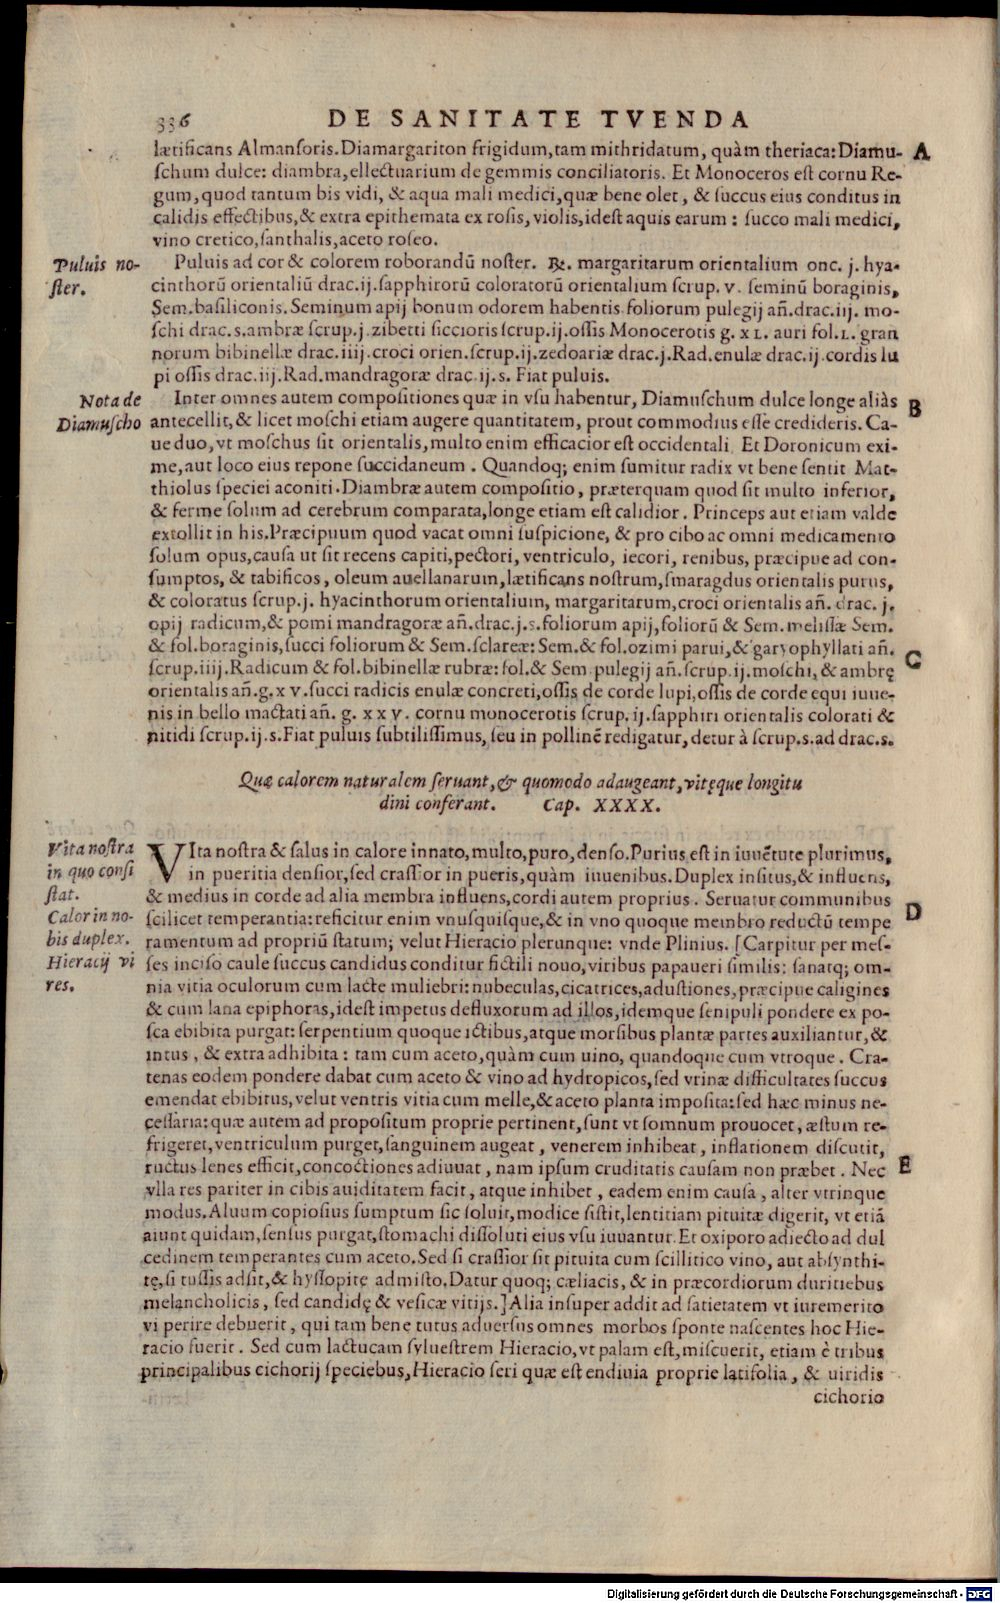 336 DE SANITATE TVENDA
lætificans Almansoris. Diamargariton frigidum, tam mithridatum, quàm theriaca: Diamu- A
schum dulce: diambra, ellectuarium de gemmis conciliatoris. Et Monoceros est cornu Re-
gum, quod tantum bis vidi, & aqua mali medici, quæ bene olet, & succus eius conditus in
calidis effectibus, & extra epithemata ex rosis, violis, idest aquis earum: succo mali medici,
vino cretico, santhalis, aceto roseo.
Puluis no-
ster.
Puluis ad cor & colorem roborandū noster. ℞. margaritarum orientalium onc. j. hya-
cinthorū orientaliū drac. ij. sapphirorū coloratorū orientalium scrup. v. seminū boraginis,
Sem. basiliconis. Seminum apij bonum odorem habentis foliorum pulegij añ. drac. iij. mo-
schi drac. s. ambræ scrup. j. zibetti siccioris scrup. ij. ossis Monocerotis g. xL. auri fol. L. gran
norum bibinellæ drac. iiij. croci orien. scrup. ij. zedoariæ drac. j. Rad. enulæ drac. ij. cordis lu
pi ossis drac. iij. Rad. mandragoræ drac. ij. s. Fiat puluis.
Nota de
Diamuscho
Inter omnes autem compositiones quæ in vsu habentur, Diamuschum dulce longe aliàs B
antecellit, & licet moschi etiam augere quantitatem, prout commodius esse credideris. Ca-
ue duo, vt moschus sit orientalis, multo enim efficacior est occidentali. Et Doronicum exi-
me, aut loco eius repone succidaneum. Quandoq; enim sumitur radix vt bene sentit Mat-
thiolus speciei aconiti. Diambræ autem compositio, præterquam quod sit multo inferior,
& ferme solum ad cerebrum comparata, longe etiam est calidior. Princeps aut etiam valde
extollit in his. Præcipuum quod vacat omni suspicione, & pro cibo ac omni medicamento
solum opus, causa ut sit recens capiti, pectori, ventriculo, iecori, renibus, præcipue ad con-
sumptos, & tabificos, oleum auellanarum, lætificans nostrum, smaragdus orientalis purus,
& coloratus scrup. j. hyacinthorum orientalium, margaritarum, croci orientalis añ. drac. j.
opij radicum, & pomi mandragoræ añ. drac. j. s. foliorum apij, foliorū & Sem. melissæ Sem.
& fol. boraginis, succi foliorum & Sem. sclareæ: Sem. & fol. ozimi parui, & garyophyllati añ. C
scrup. iiij. Radicum & fol. bibinellæ rubræ: fol. & Sem. pulegij añ. scrup. ij. moschi, & ambrę
orientalis añ. g. x v. succi radicis enulæ concreti, ossis de corde lupi, ossis de corde equi iuue-
nis in bello mactati añ. g. x x v. cornu monocerotis scrup. ij. sapphiri orientalis colorati &
nitidi scrup. ij. s. Fiat puluis subtilissimus, seu in pollinē redigatur, detur à scrup. s. ad drac. s.
Quæ calorem naturalem seruant, & quomodo adaugeant, vitęque longitu
dini conferant. Cap. XXXX.
Vita nostra
in quo consi
stat.
Calor in no-
bis duplex.
Hieracij vi
res.
VIta nostra & salus in calore innato, multo, puro, denso. Purius est in iuuētute plurimus,
in pueritia densior, sed crassior in pueris, quàm iuuenibus. Duplex insitus, & influens,
& medius in corde ad alia membra influens, cordi autem proprius. Seruatur communibus D
scilicet temperantia: reficitur enim vnusquisque, & in vno quoque membro reductū tempe
ramentum ad propriū statum; velut Hieracio plerunque: vnde Plinius. [Carpitur per mes-
ses inciso caule succus candidus conditur fictili nouo, viribus papaueri similis: sanatq; om-
nia vitia oculorum cum lacte muliebri: nubeculas, cicatrices, adustiones, præcipue caligines
& cum lana epiphoras, idest impetus defluxorum ad illos, idemque senipuli pondere ex po-
sca ebibita purgat: serpentium quoque ictibus, atque morsibus plantæ partes auxiliantur, &
intus, & extra adhibita: tam cum aceto, quàm cum uino, quandoque cum vtroque. Cra-
tenas eodem pondere dabat cum aceto & vino ad hydropicos, sed vrinæ difficultates succus
emendat ebibitus, velut ventris vitia cum melle, & aceto planta imposita: sed hæc minus ne-
cessaria: quæ autem ad propositum proprie pertinent, sunt vt somnum prouocet, æstum re-
frigeret, ventriculum purget, sanguinem augeat, venerem inhibeat, inflationem discutit,
ructus lenes efficit, concoctiones adiuuat, nam ipsum cruditatis causam non præbet. Nec E
vlla res pariter in cibis auiditatem facit, atque inhibet, eadem enim causa, alter vtrinque
modus. Aluum copiosius sumptum sic soluit, modice sistit, lentitiam pituitæ digerit, vt etiā
aiunt quidam, sensus purgat, stomachi dissoluti eius vsu iuuantur. Et oxiporo adiecto ad dul
cedinem temperantes cum aceto. Sed si crassior sit pituita cum scillitico vino, aut absynthi-
tę, si tussis adsit, & hyssopitę admisto. Datur quoq; cæliacis, & in præcordiorum duritiebus
melancholicis, sed candidę & vesicæ vitijs.] Alia insuper addit ad satietatem vt iuremerito
vi perire debuerit, qui tam bene tutus aduersus omnes morbos sponte nascentes hoc Hie-
racio fuerit. Sed cum lactucam syluestrem Hieracio, vt palam est, miscuerit, etiam è tribus
principalibus cichorij speciebus, Hieracio seri quæ est endiuia proprie latifolia, & uiridis
cichorio
Digitalisierung gefördert durch die Deutsche Forschungsgemeinschaft - DFG